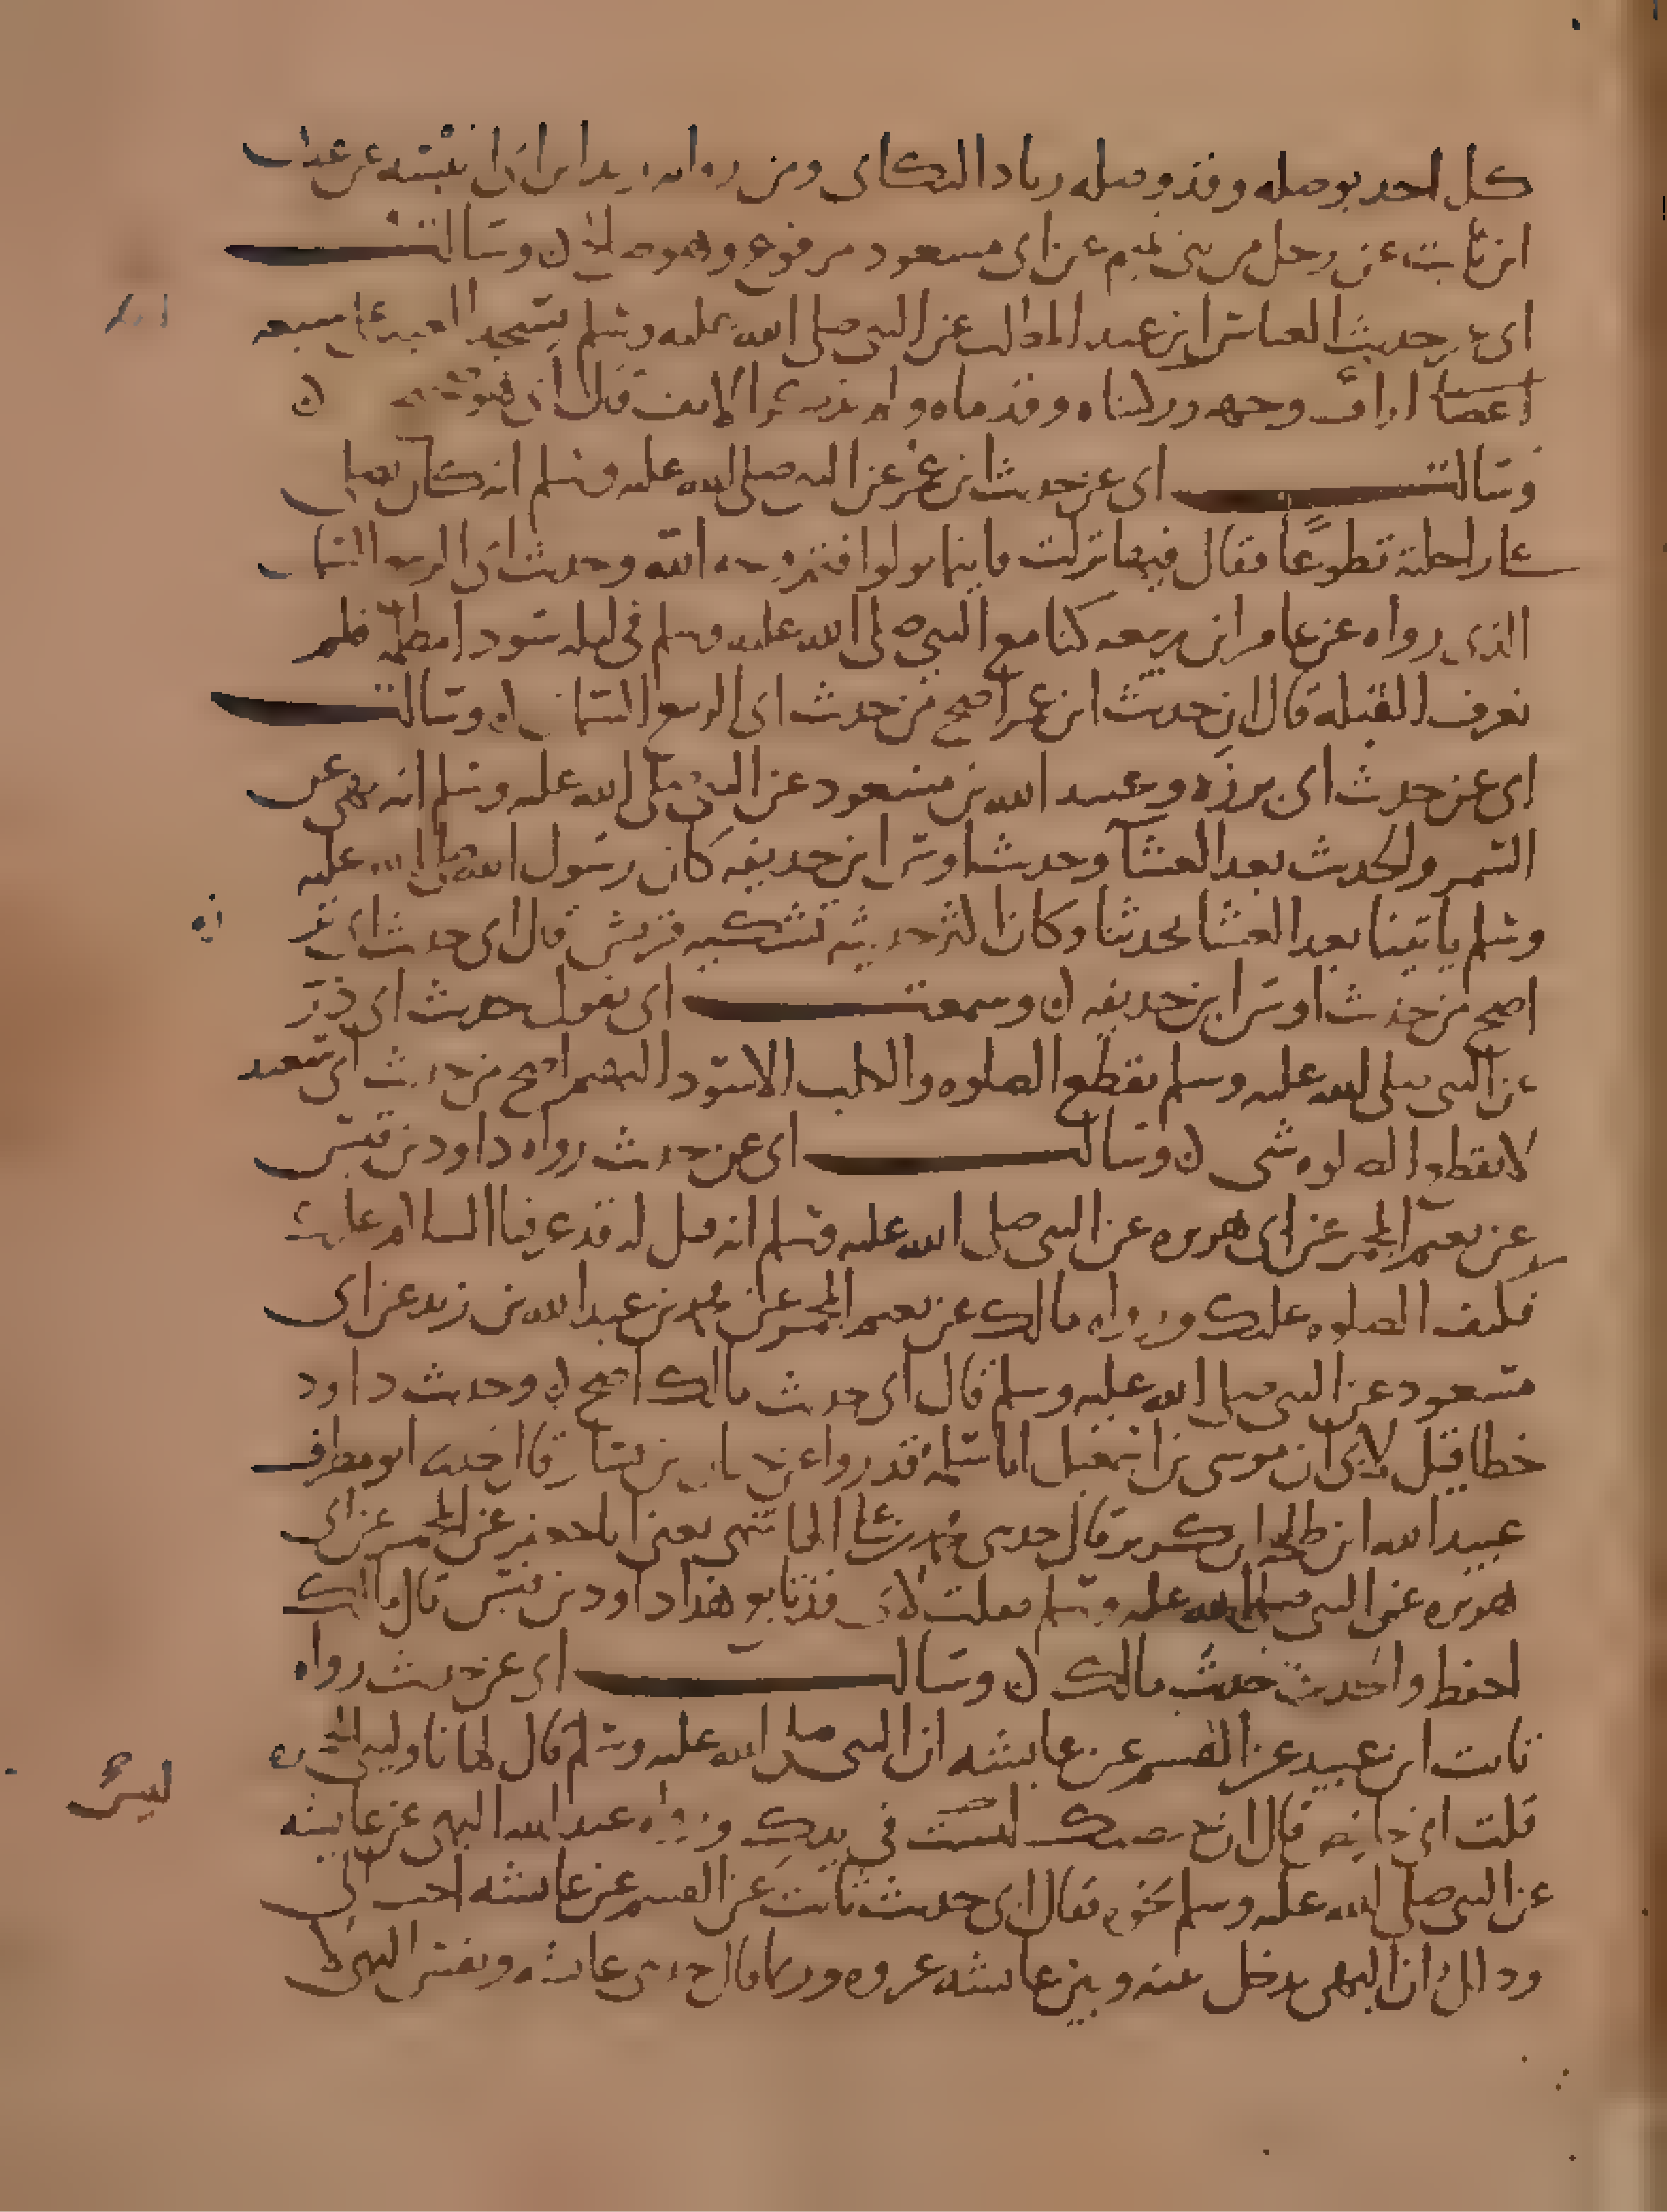 كل احد يوصله وقد وصله زياد البكاي ومن رواية زيد ابن ابي انيسه عن عدي
ابن ثابت عن رجل من بني تميم عن ابي مسعود مرفوع وهو صحيح وسالت
ابي عن حديث العباس ابن عبد المطلب عن النبي صلى الله عليه وسلم يسجد العبد على سبعه
اعضا اراب وجهه وركبتاه وقدماه
وسالت ابي عن حديث ابن عمر عن النبي صلى الله عليه وسلم انه كان يصلي
على راحلته تطوعا فقال فيها نزلت فاينما تولوا فثم وجه الله وحديث ابي الربيع السمان
الذي رواه عن عامر ابن ربيعه كنا مع النبي صلى الله عليه وسلم في ليله سودا مظلمه فلم
نعرف القبله قال ابي حديث ابن عمر اصح من حديث ابي الربيع السمان وسالت
ابي عن حديث ابي برزه وعبد الله بن مسعود عن النبي صلى الله عليه وسلم انه نهى عن
السمر والحديث بعد العشا وحديث اوس ابن حذيفه كان رسول الله صلى الله عليه
وسلم ياتينا بعد العشا يحدثنا وكان اكثر حديثه تشكيه قريش قال ابي حديث ابي برزه
اصح من حديث اوس ابن حذيفه وسمعت ابي يقول حديث ابي ذر
عن النبي صلى الله عليه وسلم يقطع الصلوه والكلب الاسود البهيم اصح من حديث ابي سعيد
لا يقطع الصلوه شي وسالت ابي عن حديث رواه داود بن قيس
عن نعيم المجمر عن ابي هريره عن النبي صلى الله عليه وسلم انه قيل له قد عرفنا السلام عليك
فكيف الصلوه عليك ورواه مالك عن نعيم المجمر عن محمد بن عبد الله بن زيد عن ابي
مسعود عن النبي صلى الله عليه وسلم قال ابي حديث مالك اصح وحديث داود
خطا قيل لابي ان موسى بن اسمعيل ابا سلمه قد رواه عن حبان بن يسار قال حدثنا ابو مطرف
عبيد الله ابن طلحه ابن كريز قال حدثني محمد بن علي الهاشمي يعني ابا جعفر عن المجمر عن ابي
هريره عن النبي صلى الله عليه وسلم فقلت لابي قد تابع هذا داود بن قيس قال مالك
احفظ والحديث حديث مالك وسالت ابي عن حديث رواه
ثابت ابن عبيد عن القسم عن عايشه ان النبي صلى الله عليه وسلم قال لها ناوليني الخمره
قلت اني حايض قال ان حيضتك ليست في يدك ورواه عبد الله البهي عن عايشه
عن النبي صلى الله عليه وسلم نحوه فقال ابي حديث ثابت عن القسم عن عايشه احب الي
وذلك ان البهي يدخل بينه وبين عايشه عروه وربما قال حدثني عايشه ونفس البهي لا